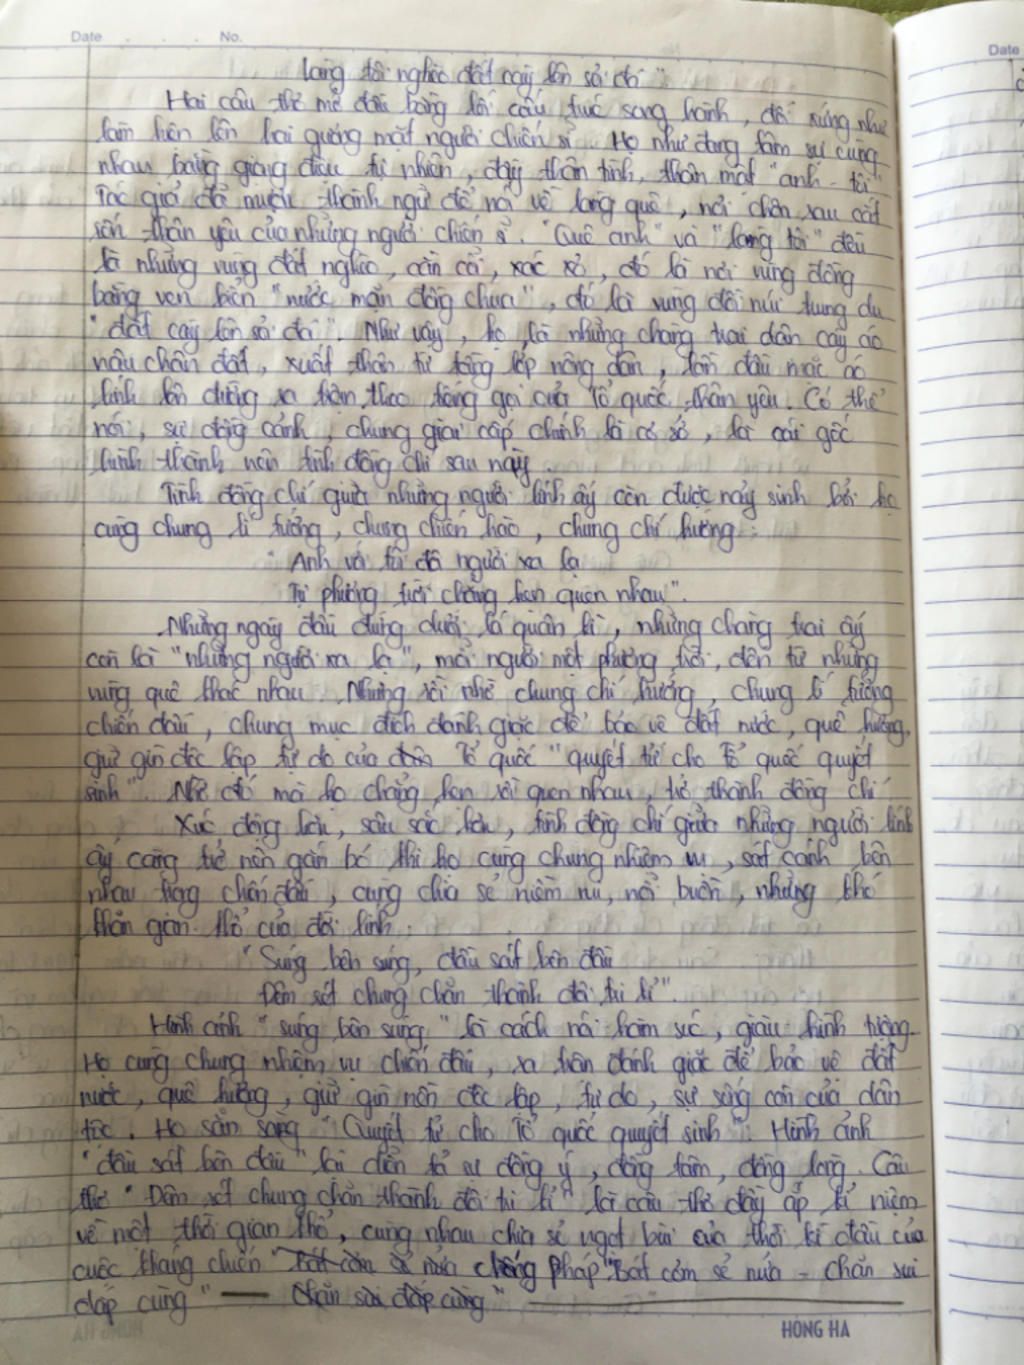 Date No.
Làng tôi nghèo đất cày lên sỏi đá"
Hai câu thơ mở đầu bằng lối cấu trúc song hành, đối xứng như
làm hiện lên hai gương mặt người chiến sĩ. Họ như đang tâm sự cùng
nhau bằng giọng điệu tự nhiên, đầy thân tình, thân mật "anh - tôi"
Tác giả đã mượn thành ngữ để nói về làng quê, nơi chôn rau cắt
rốn thân yêu của những người chiến sĩ. "Quê anh" và "làng tôi" đều
là những vùng đất nghèo, cằn cỗi, xác xơ, đó là nơi vùng đồng
bằng ven biển "nước mặn đồng chua", đó là vùng đồi núi trung du
"đất cày lên sỏi đá". Như vậy, họ là những chàng trai dân cày áo
nâu chân đất, xuất thân từ tầng lớp nông dân, lần đầu mặc áo
lính lên đường ra trận theo tiếng gọi của Tổ quốc thân yêu. Có thể
nói, sự đồng cảnh, chung giai cấp chính là cơ sở, là cái gốc
hình thành nên tình đồng chí sau này.
Tình đồng chí giữa những người lính ấy còn được nảy sinh bởi họ
cùng chung lí tưởng, chung chiến hào, chung chí hướng:
"Anh với tôi đôi người xa lạ
Tự phương trời chẳng hẹn quen nhau".
Những ngày đầu đứng dưới lá quân kì, những chàng trai ấy
còn là "những người xa lạ", mỗi người một phương trời, đến từ những
vùng quê khác nhau. Nhưng rồi nhờ chung chí hướng, chung lí tưởng
chiến đấu, chung mục đích đánh giặc để bảo vệ đất nước, quê hương,
giữ gìn độc lập tự do của Tổ quốc "quyết tử cho Tổ quốc quyết
sinh". Nhờ đó mà họ chẳng hẹn rồi quen nhau, trở thành đồng chí
Xúc động hơn, sâu sắc hơn, tình đồng chí giữa những người lính
ấy càng trở nên gắn bó khi họ cùng chung nhiệm vụ, sát cánh bên
nhau trong chiến đấu, cùng chia sẻ niềm vui, nỗi buồn, những khó
khăn gian khổ của đời lính:
"Súng bên súng, đầu sát bên đầu
Đêm rét chung chăn thành đôi tri kỉ".
Hình ảnh "súng bên súng" là cách nói hàm súc, giàu hình tượng.
Họ cùng chung nhiệm vụ chiến đấu, ra trận đánh giặc để bảo vệ đất
nước, quê hương, giữ gìn nền độc lập, tự do, sự sống còn của dân
tộc. Họ sẵn sàng "Quyết tử cho Tổ quốc quyết sinh". Hình ảnh
"đầu sát bên đầu" lại diễn tả sự đồng ý, đồng tâm, đồng lòng. Câu
thơ "Đêm rét chung chăn thành đôi tri kỉ" là câu thơ đầy ắp kỉ niệm
về một thời gian khổ, cùng nhau chia sẻ ngọt bùi của thời kì đầu của
cuộc kháng chiến Bát cơm sẻ nửa chống Pháp "Bát cơm sẻ nửa - chăn sui
đắp cùng" Chăn sui đắp cùng"
HỒNG HÀ
Date